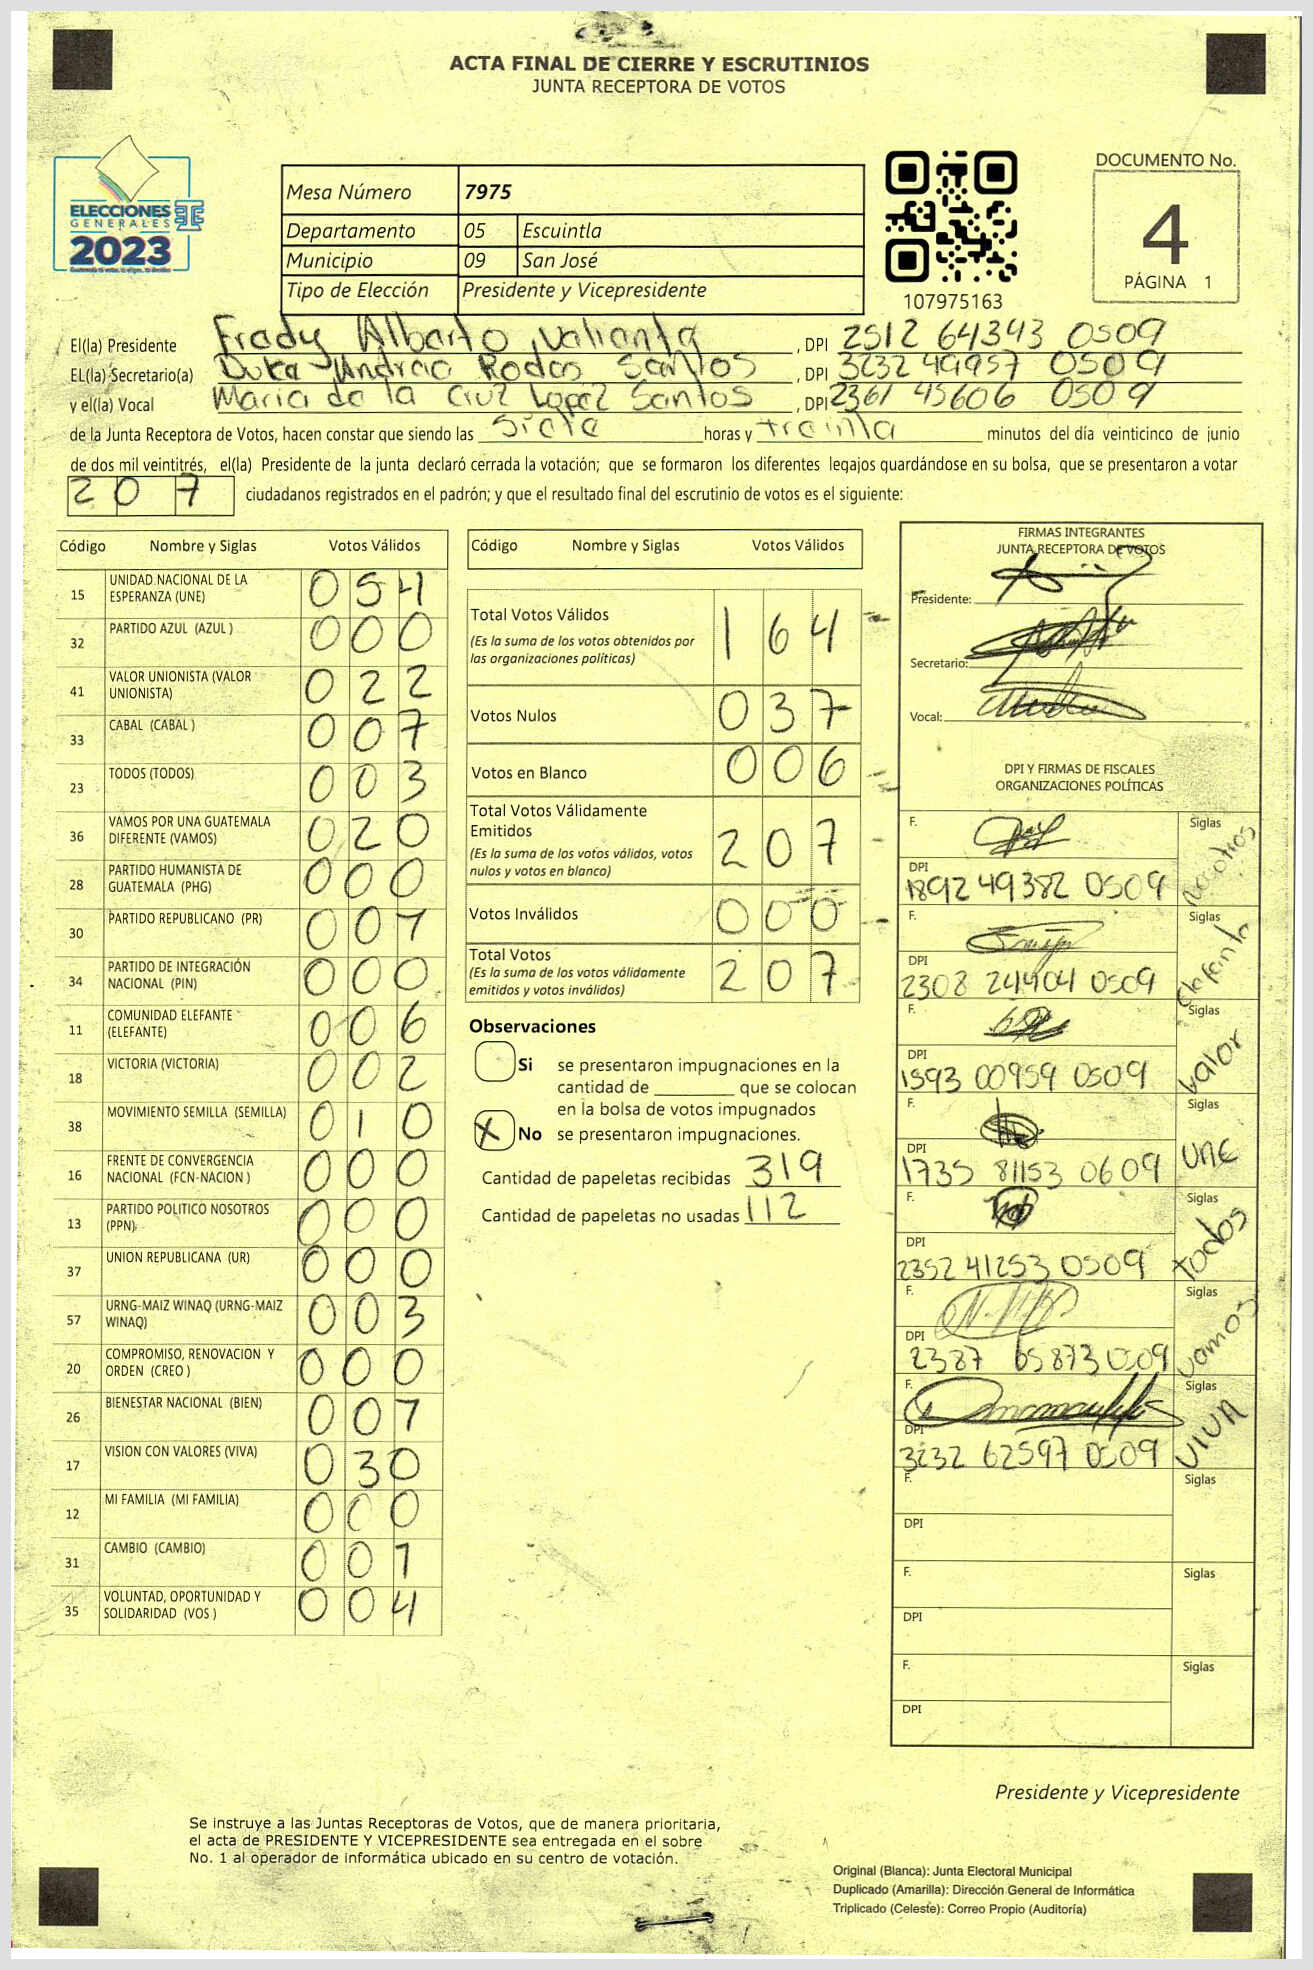 ACTA FINAL DE CIERRE Y ESCRUTINIOS
JUNTA RECEPTORA DE VOTOS
ELECCIONES
GENERALES
2023
Mesa Número 7975
Departamento 05 Escuintla
Municipio 09 San José
Tipo de Elección Presidente y Vicepresidente
107975163
DOCUMENTO No.
4
PÁGINA 1
El(la) Presidente Fredy Alberto Valiente, DPI 2512 64343 0509
EL(la) Secretario(a) Andrea Rodas Santos, DPI 3232 49957 0509
y el(la) Vocal Maria de la Cruz Lopez Santos, DPI 2361 45606 0509
de la Junta Receptora de Votos, hacen constar que siendo las siete horas y treinta minutos del día veinticinco de junio
de dos mil veintitrés, el(la) Presidente de la junta declaró cerrada la votación; que se formaron los diferentes legajos guardándose en su bolsa, que se presentaron a votar
207 ciudadanos registrados en el padrón; y que el resultado final del escrutinio de votos es el siguiente:
Código Nombre y Siglas Votos Válidos
15 UNIDAD NACIONAL DE LA ESPERANZA (UNE) 054
32 PARTIDO AZUL (AZUL ) 000
41 VALOR UNIONISTA (VALOR UNIONISTA) 022
33 CABAL (CABAL ) 007
23 TODOS (TODOS) 003
36 VAMOS POR UNA GUATEMALA DIFERENTE (VAMOS) 020
28 PARTIDO HUMANISTA DE GUATEMALA (PHG) 000
30 PARTIDO REPUBLICANO (PR) 007
34 PARTIDO DE INTEGRACIÓN NACIONAL (PIN) 000
11 COMUNIDAD ELEFANTE (ELEFANTE) 006
18 VICTORIA (VICTORIA) 002
38 MOVIMIENTO SEMILLA (SEMILLA) 010
16 FRENTE DE CONVERGENCIA NACIONAL (FCN-NACION ) 000
13 PARTIDO POLITICO NOSOTROS (PPN) 000
37 UNION REPUBLICANA (UR) 000
57 URNG-MAIZ WINAQ (URNG-MAIZ WINAQ) 003
20 COMPROMISO, RENOVACION Y ORDEN (CREO ) 000
26 BIENESTAR NACIONAL (BIEN) 007
17 VISION CON VALORES (VIVA) 030
12 MI FAMILIA (MI FAMILIA) 000
31 CAMBIO (CAMBIO)
35 VOLUNTAD, OPORTUNIDAD Y SOLIDARIDAD (VOS ) 004
Código Nombre y Siglas Votos Válidos
Total Votos Válidos 164
(Es la suma de los votos obtenidos por
las organizaciones políticas)
Votos Nulos 037
Votos en Blanco 006
Total Votos Válidamente
Emitidos 207
(Es la suma de los votos válidos, votos
nulos y votos en blanco)
Votos Inválidos 000
Total Votos 207
(Es la suma de los votos válidamente
emitidos y votos inválidos)
Observaciones
Si se presentaron impugnaciones en la
cantidad de ________ que se colocan
en la bolsa de votos impugnados
X No se presentaron impugnaciones.
Cantidad de papeletas recibidas 319
Cantidad de papeletas no usadas 112
FIRMAS INTEGRANTES
JUNTA RECEPTORA DE VOTOS
Presidente:
Secretario:
Vocal:
DPI Y FIRMAS DE FISCALES
ORGANIZACIONES POLÍTICAS
F. Siglas Nosotros
DPI 1892 49382 0509
F. Siglas elefante
DPI 2308 24404 0509
F. Siglas Valor
DPI 1593 00959 0509
F. Siglas UNE
DPI 1735 81153 0609
F. Siglas Todos
DPI 2352 41253 0509
F. Siglas vamos
DPI 2387 65873 0509
F. Siglas VIVA
DPI 3232 62597 0509
F. Siglas
DPI
F. Siglas
DPI
F. Siglas
DPI
Presidente y Vicepresidente
Se instruye a las Juntas Receptoras de Votos, que de manera prioritaria,
el acta de PRESIDENTE Y VICEPRESIDENTE sea entregada en el sobre
No. 1 al operador de informática ubicado en su centro de votación.
Original (Blanca): Junta Electoral Municipal
Duplicado (Amarilla): Dirección General de Informática
Triplicado (Celeste): Correo Propio (Auditoría)